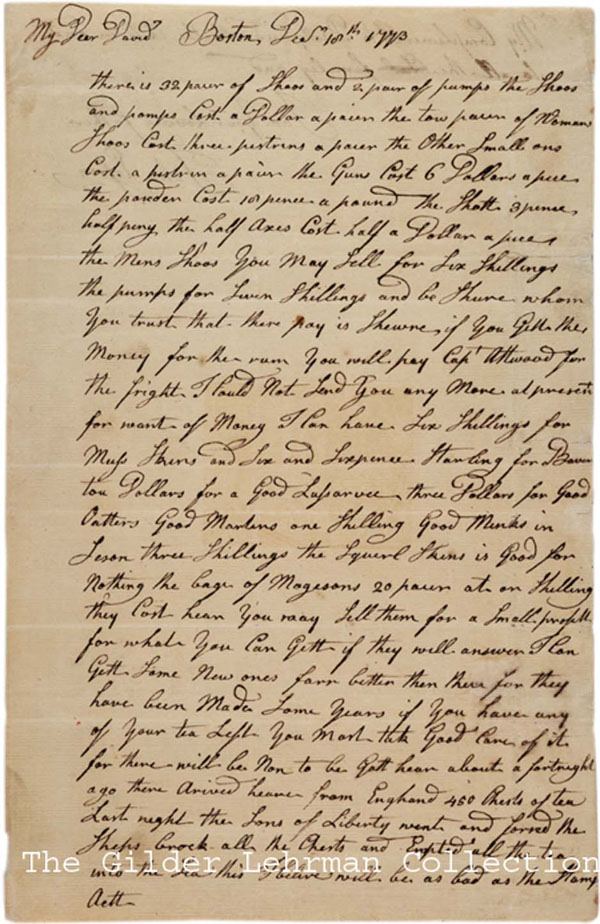 My Deer David Boston, Decr. 18th 1773
there is 32 pair of Shoos and 2 pair of pumps the Shoos
and pomps Cost a Dollar a paier the tow paier of Womans
Shoos Cost three pistrins a paier the Other Small ons
Cost a pistrin a paier the Guns Cost 6 Dollars a piece
the powder Cost 18 pence a pound the Shott 3 pence
half peny the half Axes Cost half a Dollar a piece
the Mens Shoos You May Sell for Six Shillings
the pumps for Seven Shillings and be Shure whom
You trust that there pay is Shewre if You Gitt the
Money for the rum You will pay Capt Attwood for
the fright I Could Not Send You any More at present
for want of Money I Can have Six Shillings for
Muss Skins and Six and Sixpence Starling for Baver
tou Dollars for a Good Lussarvee three Dollars for Good
Oatters Good Martens one Shilling Good Minks in
Seson three Shillings the Squerl Skins is Good for
Nothing the bage of Mogesons 20 paier at on Shilling
they Cost hear You may Sell them for a Small profitt
for what You Can Gett if they will answer I Can
Gett Some New ones farr better then these for they
have been Made Some Years if You have any
of Your tea Left You Most take Good Care of it
for there will be Non to be Gott hear about a fortnight
ago there Arived heare from England 450 Chests of tea
Last night the Sons of Liberty went and forced the
Sheps brock all the Chests and Empted all the tea
into the Sea this I belive will be as bad as the Stamp
Actt
The Gilder Lehrman Collection